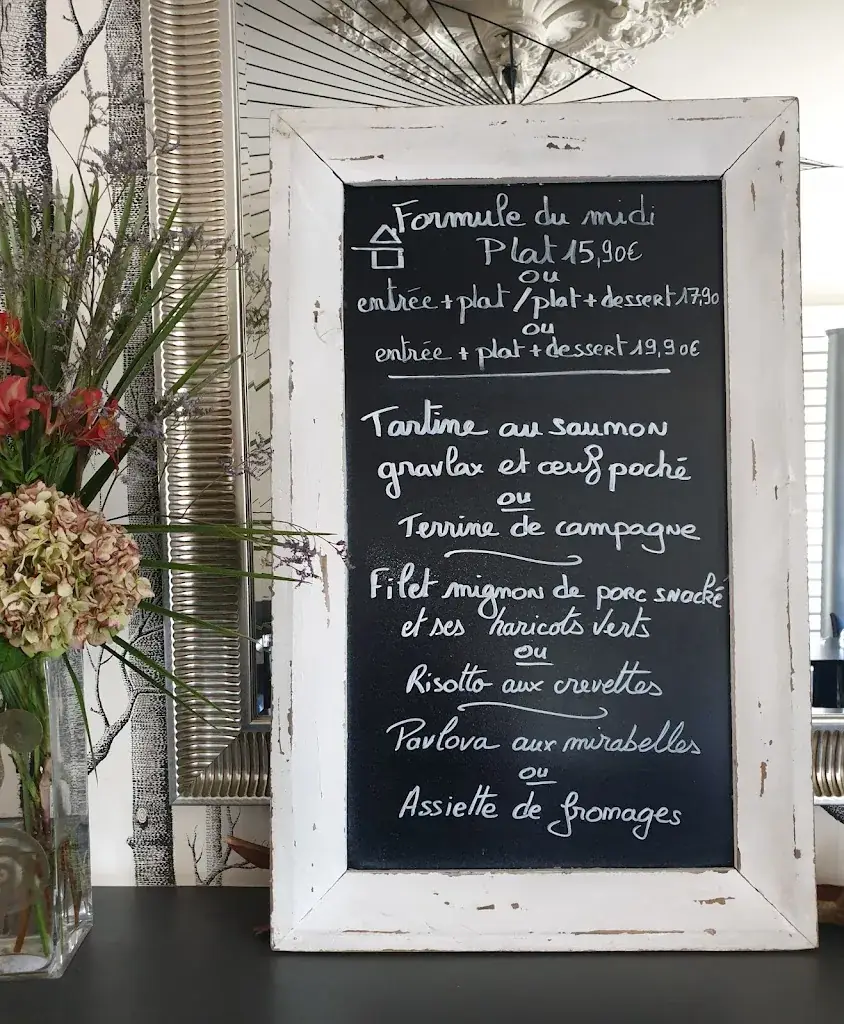 Formule du midi
Plat 15,90€
ou
entrée + plat / plat + dessert 17,90
ou
entrée + plat + dessert 19,90€
Tartine au saumon
gravlax et œuf poché
ou
Terrine de campagne
Filet mignon de porc snacké
et ses haricots verts
ou
Risotto aux crevettes
Pavlova aux mirabelles
ou
Assiette de fromages